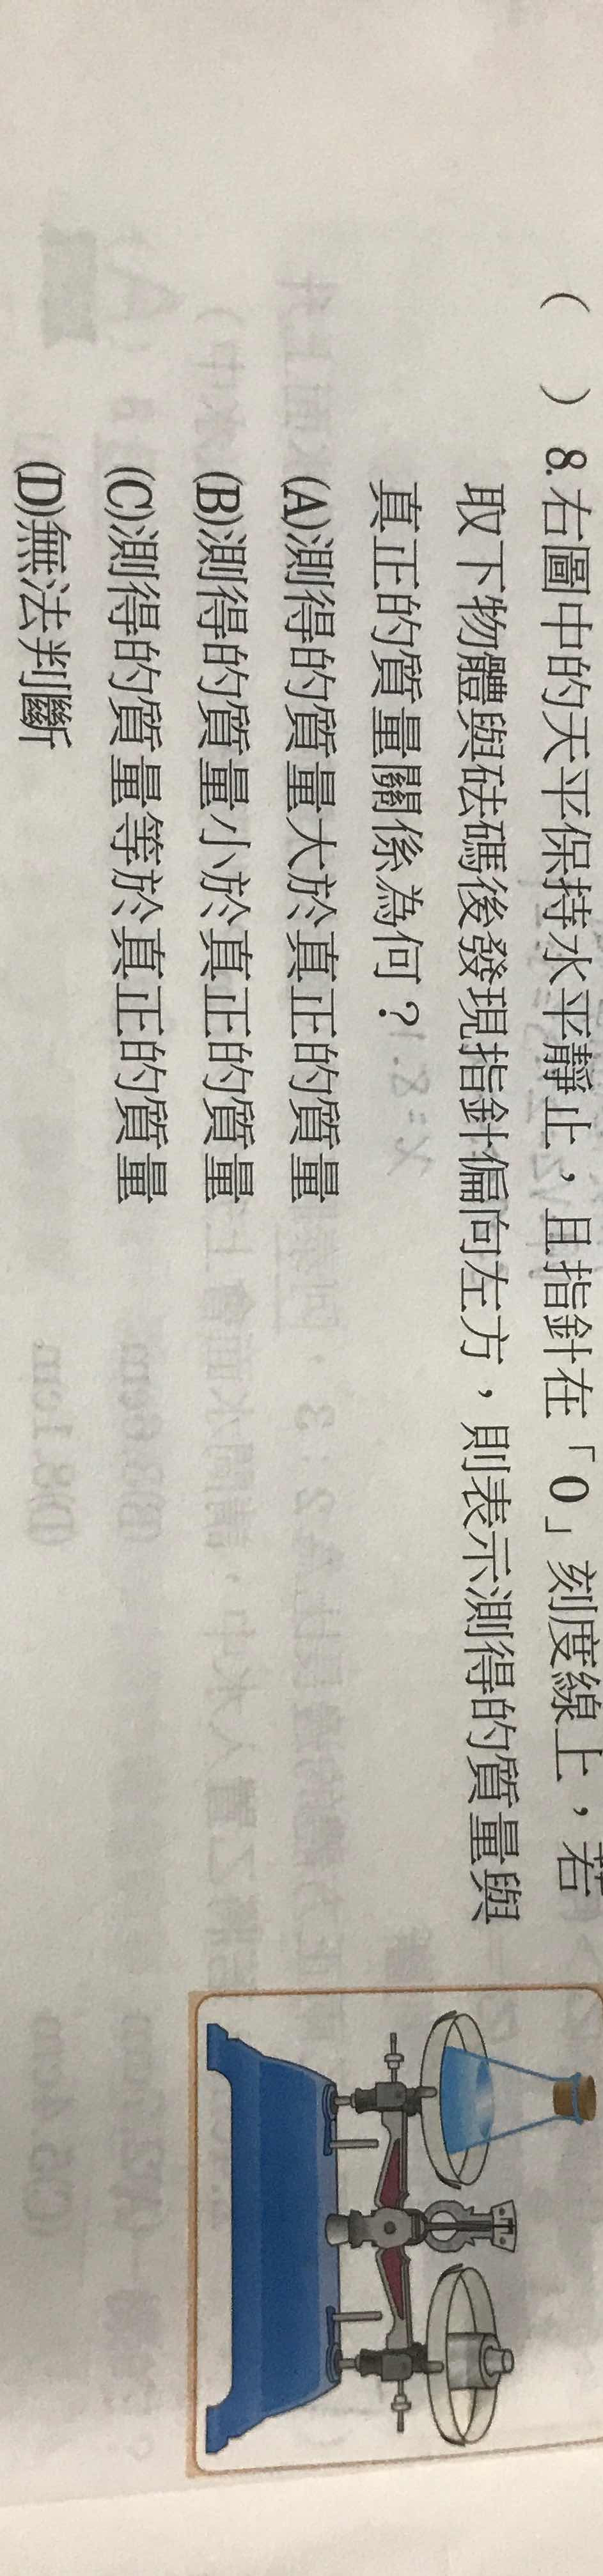 （　）8.右圖中的天平保持水平靜止，且指針在「0」刻度線上，若
取下物體與砝碼後發現指針偏向左方，則表示測得的質量與
真正的質量關係為何？
(A)測得的質量大於真正的質量
(B)測得的質量小於真正的質量
(C)測得的質量等於真正的質量
(D)無法判斷